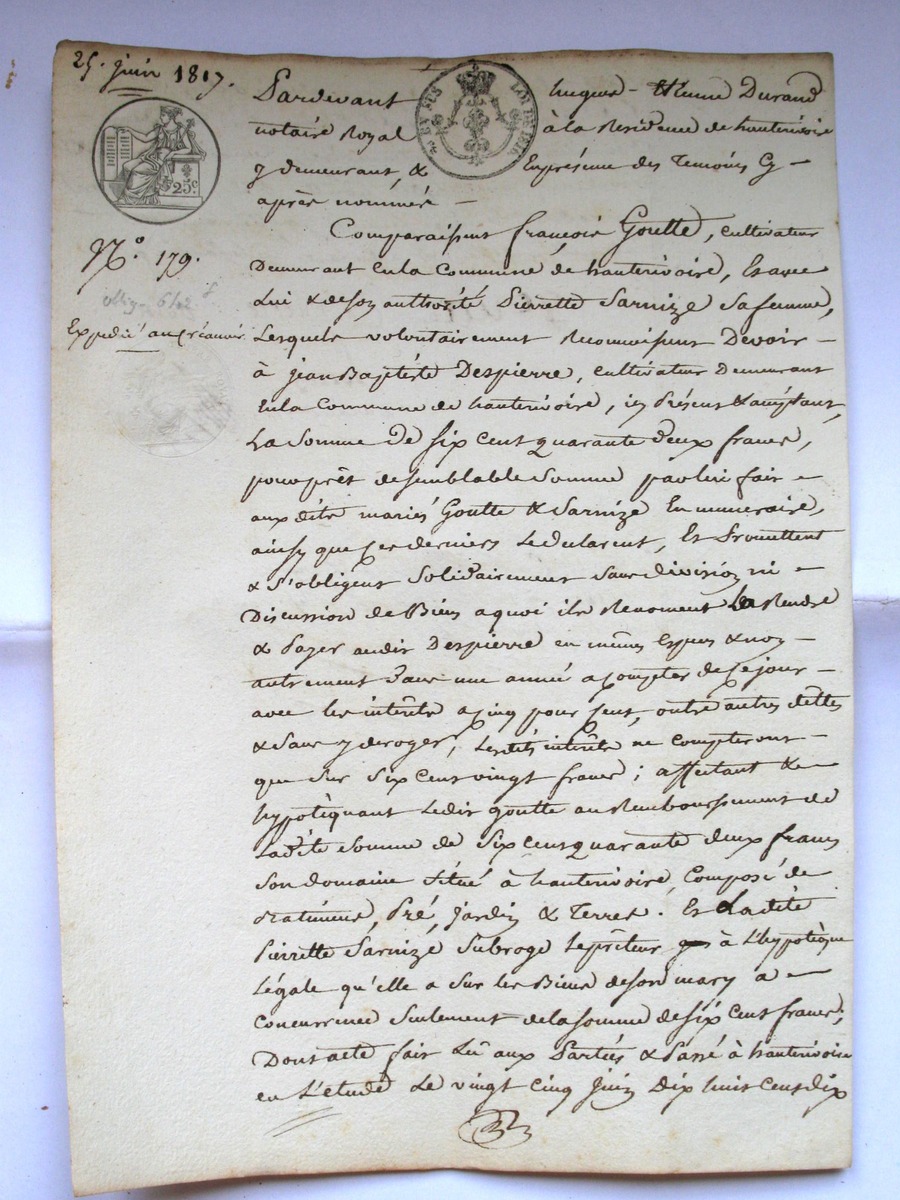 25. juin 1817.
Pardevant hugues - Etienne Durand
notaire Royal à la Résidence de hauterivoire
y demeurant, & En présence des Temoins Cy -
après nommés -
25c
N.º 179.
Expédié au créancier
Comparaissent françois Goutte, cultivateur
Demeurant En la Commune de hauterivoire, Et avec
Lui & de son authorité Pierrette Sarnize Sa femme,
Lesquels volontairement Reconnoissent Devoir -
à jean Baptiste Despierre, cultivateur Demeurant
En la Commune de hauterivoire, ici Présent & acceptant,
La Somme De Six Cent quarante deux francs,
pour prêt de semblable Somme par lui fait -
aux dits mariés Goutte & Sarnize En numeraire,
ainsy que Ces derniers Le déclarent, Et Promettent
& S'obligent Solidairement Sans division ni -
Discussion de Biens a quoi ils Renoncent De Rendre
& Payer audit Despierre en mêmes Especes & non -
autrement Dans une année a Compter de Ce jour -
avec les intérêts a Cinq pour Cent, outre autres dettes
& Sans y deroger, Lesdits intérêts ne Compteront -
que Sur Six Cent vingt francs ; affectant & -
hypotèquant Ledit goutte au Remboursement de
Ladite Somme de Six Cent quarante deux francs
Son domaine Situé à hauterivoire, Composé de
Batiments, Pré, Jardin & Terres. Et Ladite
Pierrette Sarnize Subroge Le prêteur à L'hypotèque
Légale qu'elle a Sur les Biens de son mary à -
Concurrence Seulement de la Somme de Six Cent francs ;
Dont acte fait Lû aux Parties & Passé à hauterivoire
en L'étude Le vingt Cinq Juin Dix huit Cent dix